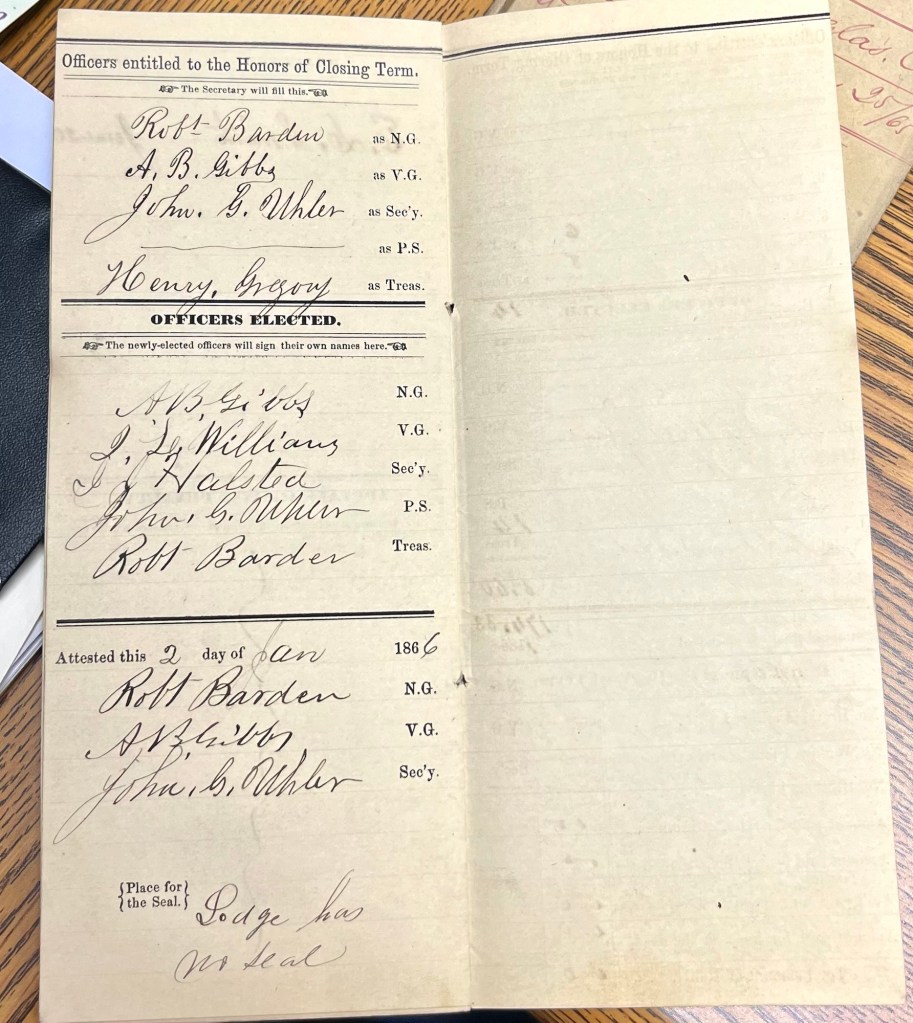 Officers entitled to the Honors of Closing Term.
The Secretary will fill this.
Robt Barden as N.G.
A. B. Gibbs as V.G.
John. G. Uhler as Sec'y.
as P.S.
Henry, Gregory as Treas.
OFFICERS ELECTED.
The newly-elected officers will sign their own names here.
A B, Gibbs N.G.
Williams V.G.
Halsted Sec'y.
John, G. Uhler P.S.
Robt Barden Treas.
Attested this 2 day of Jan 1866
Robt Barden N.G.
A B Gibbs V.G.
John, G, Uhler Sec'y.
{Place for
the Seal.} Lodge has
no seal
25/65